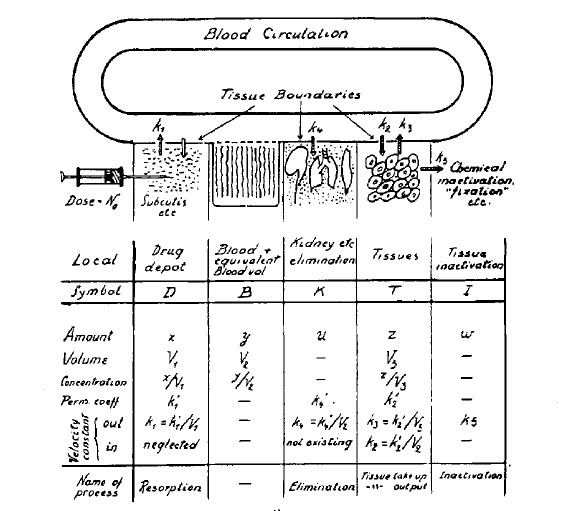 Blood Circulation
Tissue Boundaries
k₁
k₄
k₂ k₃
k₅
Chemical
inactivation,
"fixation"
etc.
Dose = N₀
Subcutis
etc
Local
Drug
depot
Blood +
equivalent
Blood vol
Kidney etc
elimination
Tissues
Tissue
inactivation
Symbol D B K T I
Amount x y u z w
Volume V₁ V₂ — V₃ —
Concentration x/V₁ y/V₂ — z/V₃ —
Perm. coeff k₁' — k₄' k₂' —
Velocity
constant
out k₁ = k₁'/V₁ — k₄ = k₄'/V₂ k₃ = k₂'/V₃ k5
in neglected — not existing k₂ = k₂'/V₂ —
Name of
process
Resorption — Elimination
Tissue take up
-"- output
Inactivation